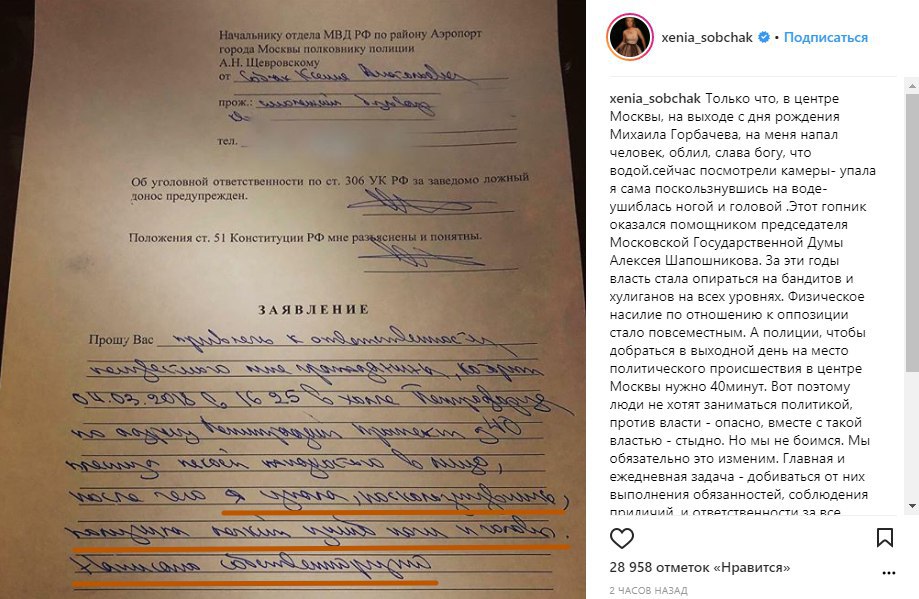 Начальнику отдела МВД РФ по району Аэропорт
города Москвы полковнику полиции
А.Н. Щевровскому
от Собчак Ксения Анатольевич
прож.:
тел.
Об уголовной ответственности по ст. 306 УК РФ за заведомо ложный
донос предупрежден.
Положения ст. 51 Конституции РФ мне разъяснены и понятны.
ЗАЯВЛЕНИЕ
Прошу Вас привлечь к ответственности
неизвестного мне гражданина, который
04.03.2018 в 16 25 в холле
по адресу Ленинградский проспект
в лицо,
после чего я упала, поскользнувшись,
ноги и головы.
Написано собственноручно
xenia_sobchak • Подписаться
xenia_sobchak Только что, в центре
Москвы, на выходе с дня рождения
Михаила Горбачева, на меня напал
человек, облил, слава богу, что
водой.сейчас посмотрели камеры- упала
я сама поскользнувшись на воде-
ушиблась ногой и головой .Этот гопник
оказался помощником председателя
Московской Государственной Думы
Алексея Шапошникова. За эти годы
власть стала опираться на бандитов и
хулиганов на всех уровнях. Физическое
насилие по отношению к оппозиции
стало повсеместным. А полиции, чтобы
добраться в выходной день на место
политического происшествия в центре
Москвы нужно 40минут. Вот поэтому
люди не хотят заниматься политикой,
против власти - опасно, вместе с такой
властью - стыдно. Но мы не боимся. Мы
обязательно это изменим. Главная и
ежедневная задача - добиваться от них
выполнения обязанностей, соблюдения
приличий, и ответственности за все
28 958 отметок «Нравится»
2 ЧАСОВ НАЗАД